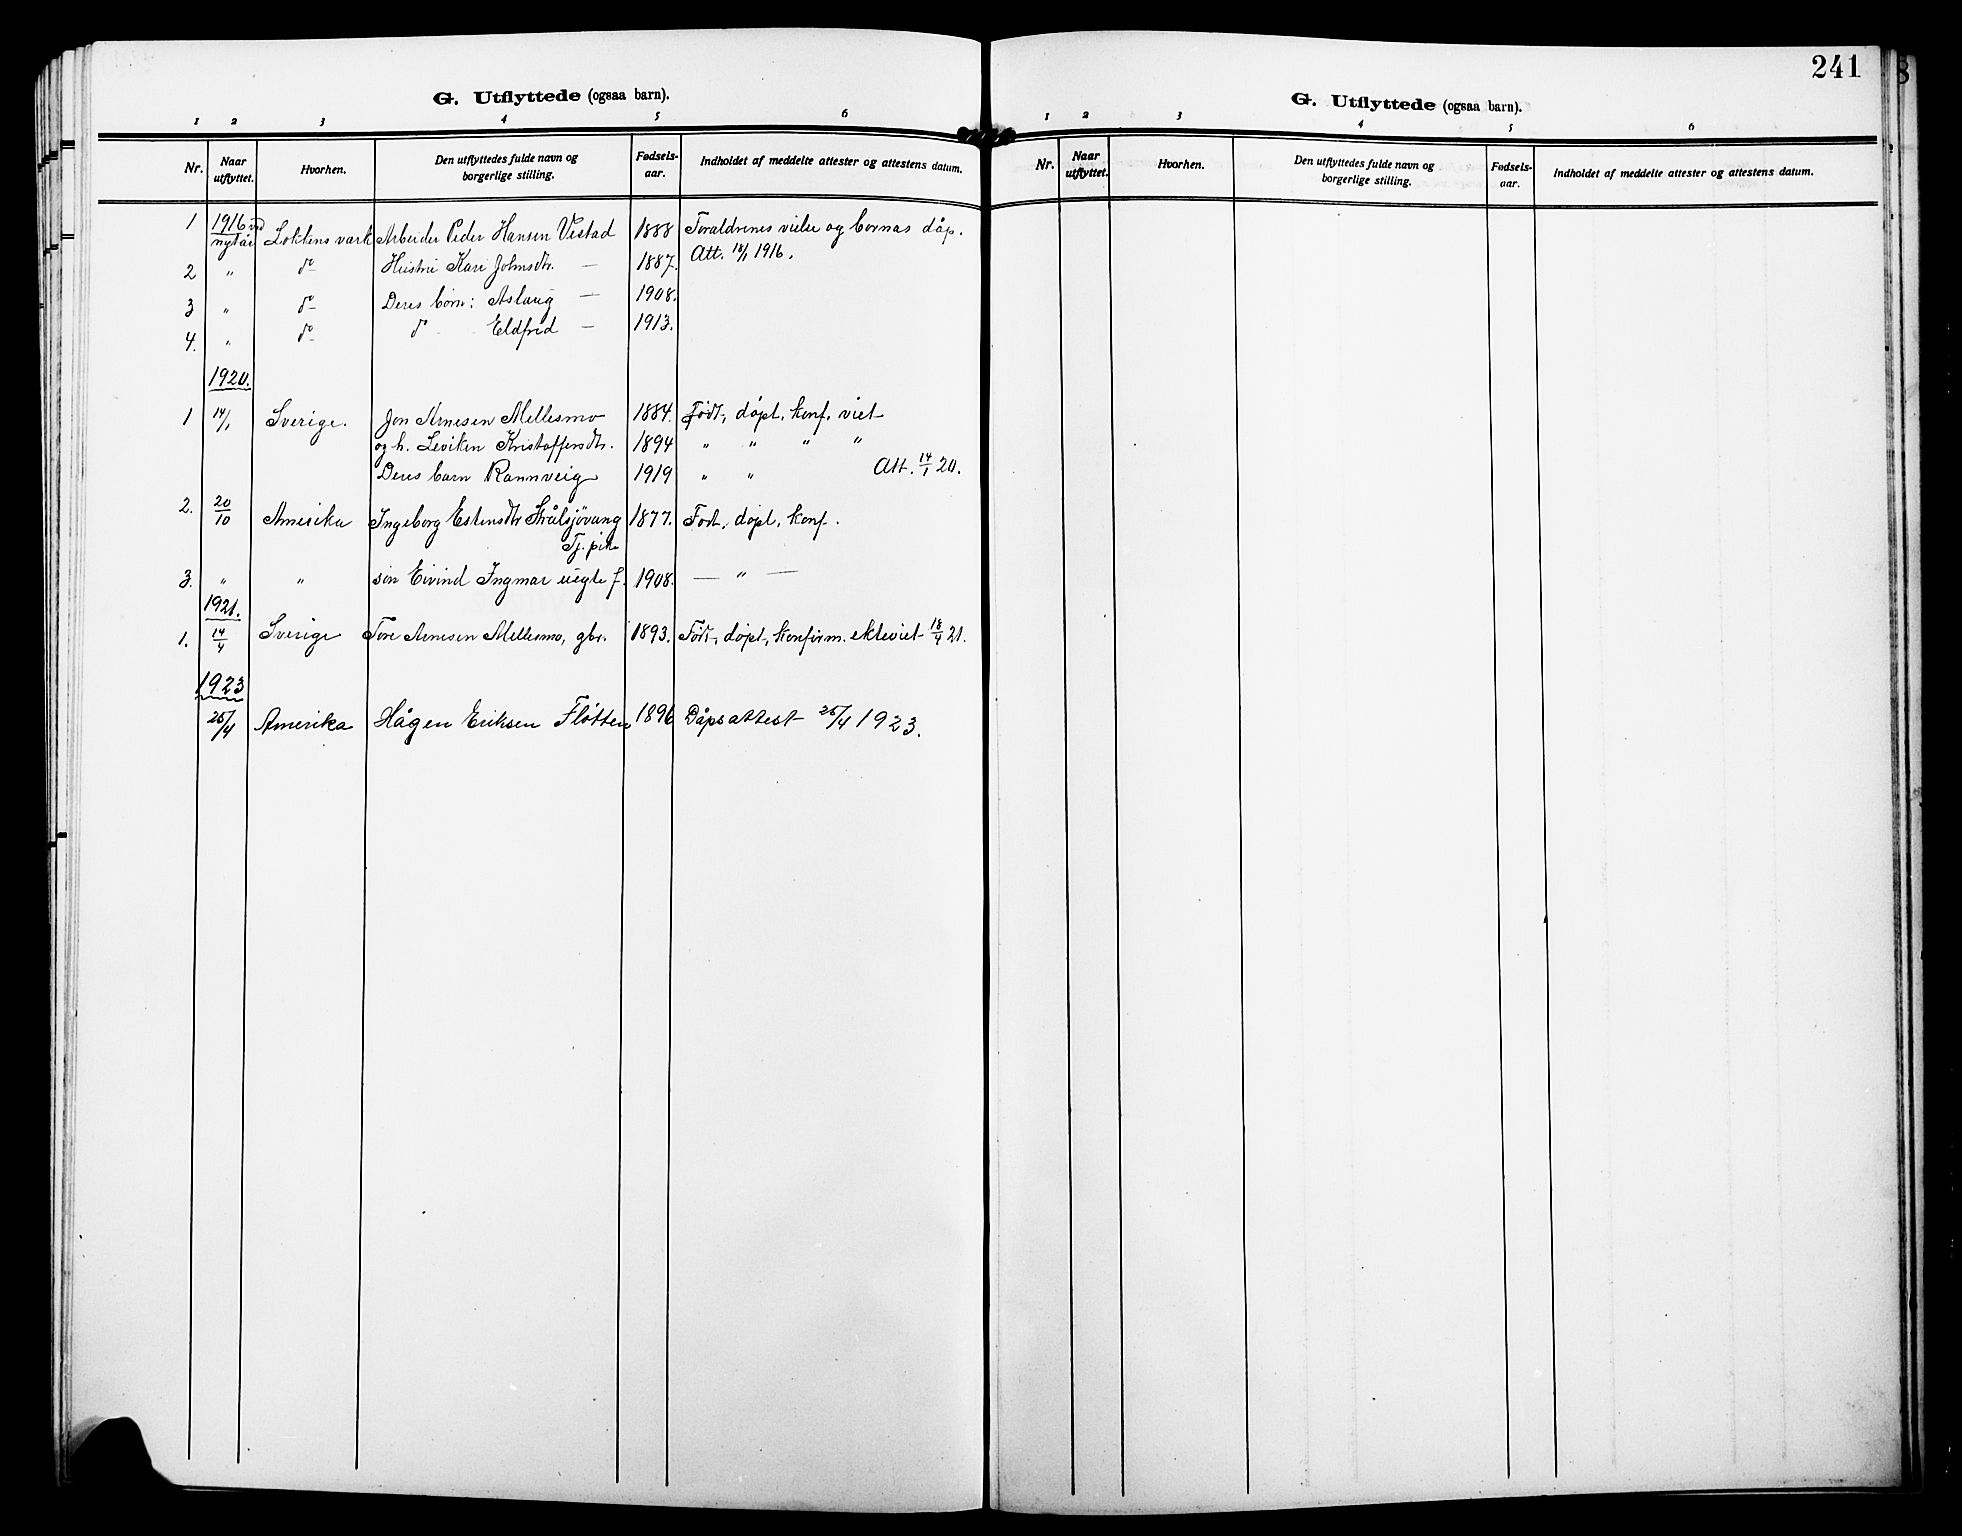 G. Utflyttede (ogsaa barn).
1 2 3 4 5 6
Nr. Naar utflyttet. Hvorhen. Den utflyttedes fulde navn og borgerlige stilling. Fødsels-aar. Indholdet af meddelte attester og attestens datum.
1 1916 ved nytår Løkkens værk Arbeider Peder Hansen Vestad 1888 Foræld­renes vielse og børnas dåp.
Att. 18/1 1916.
2 " do Hustru Kari Johnsdtr. — 1887.
3 " do Deres børn: Aslaug — 1908.
4. " do do Eldfrid — 1913.
1920.
1 14/1 Sverige. Jon Arnesen Mellesmo 1884. Født, døpt, konf, viet
og h. Leviken Kristoffersdtr. 1894 " " " "
Deres barn Rannveig 1919 " " Att. 14/1 20.
2. 20/10 Amerika Ingeborg Estensdtr Strålsjövang 1877. Født, døpt, konf.
Tj. pike
3. " " søn Eivind Ingmar uegte f. 1908. — " —
1921.
1. 14/4 Sverige Tore Arnesen Mellesmo, gbr. 1893. Født, døpt, konfirm. ekteviet 18/4 21.
1923
25/4 Amerika Hågen Eriksen Fløtten 1896 Dåpsattest 25/4 1923.
241
G. Utflyttede (ogsaa barn).
1 2 3 4 5 6
Nr. Naar utflyttet. Hvorhen. Den utflyttedes fulde navn og borgerlige stilling. Fødsels-aar. Indholdet af meddelte attester og attestens datum.